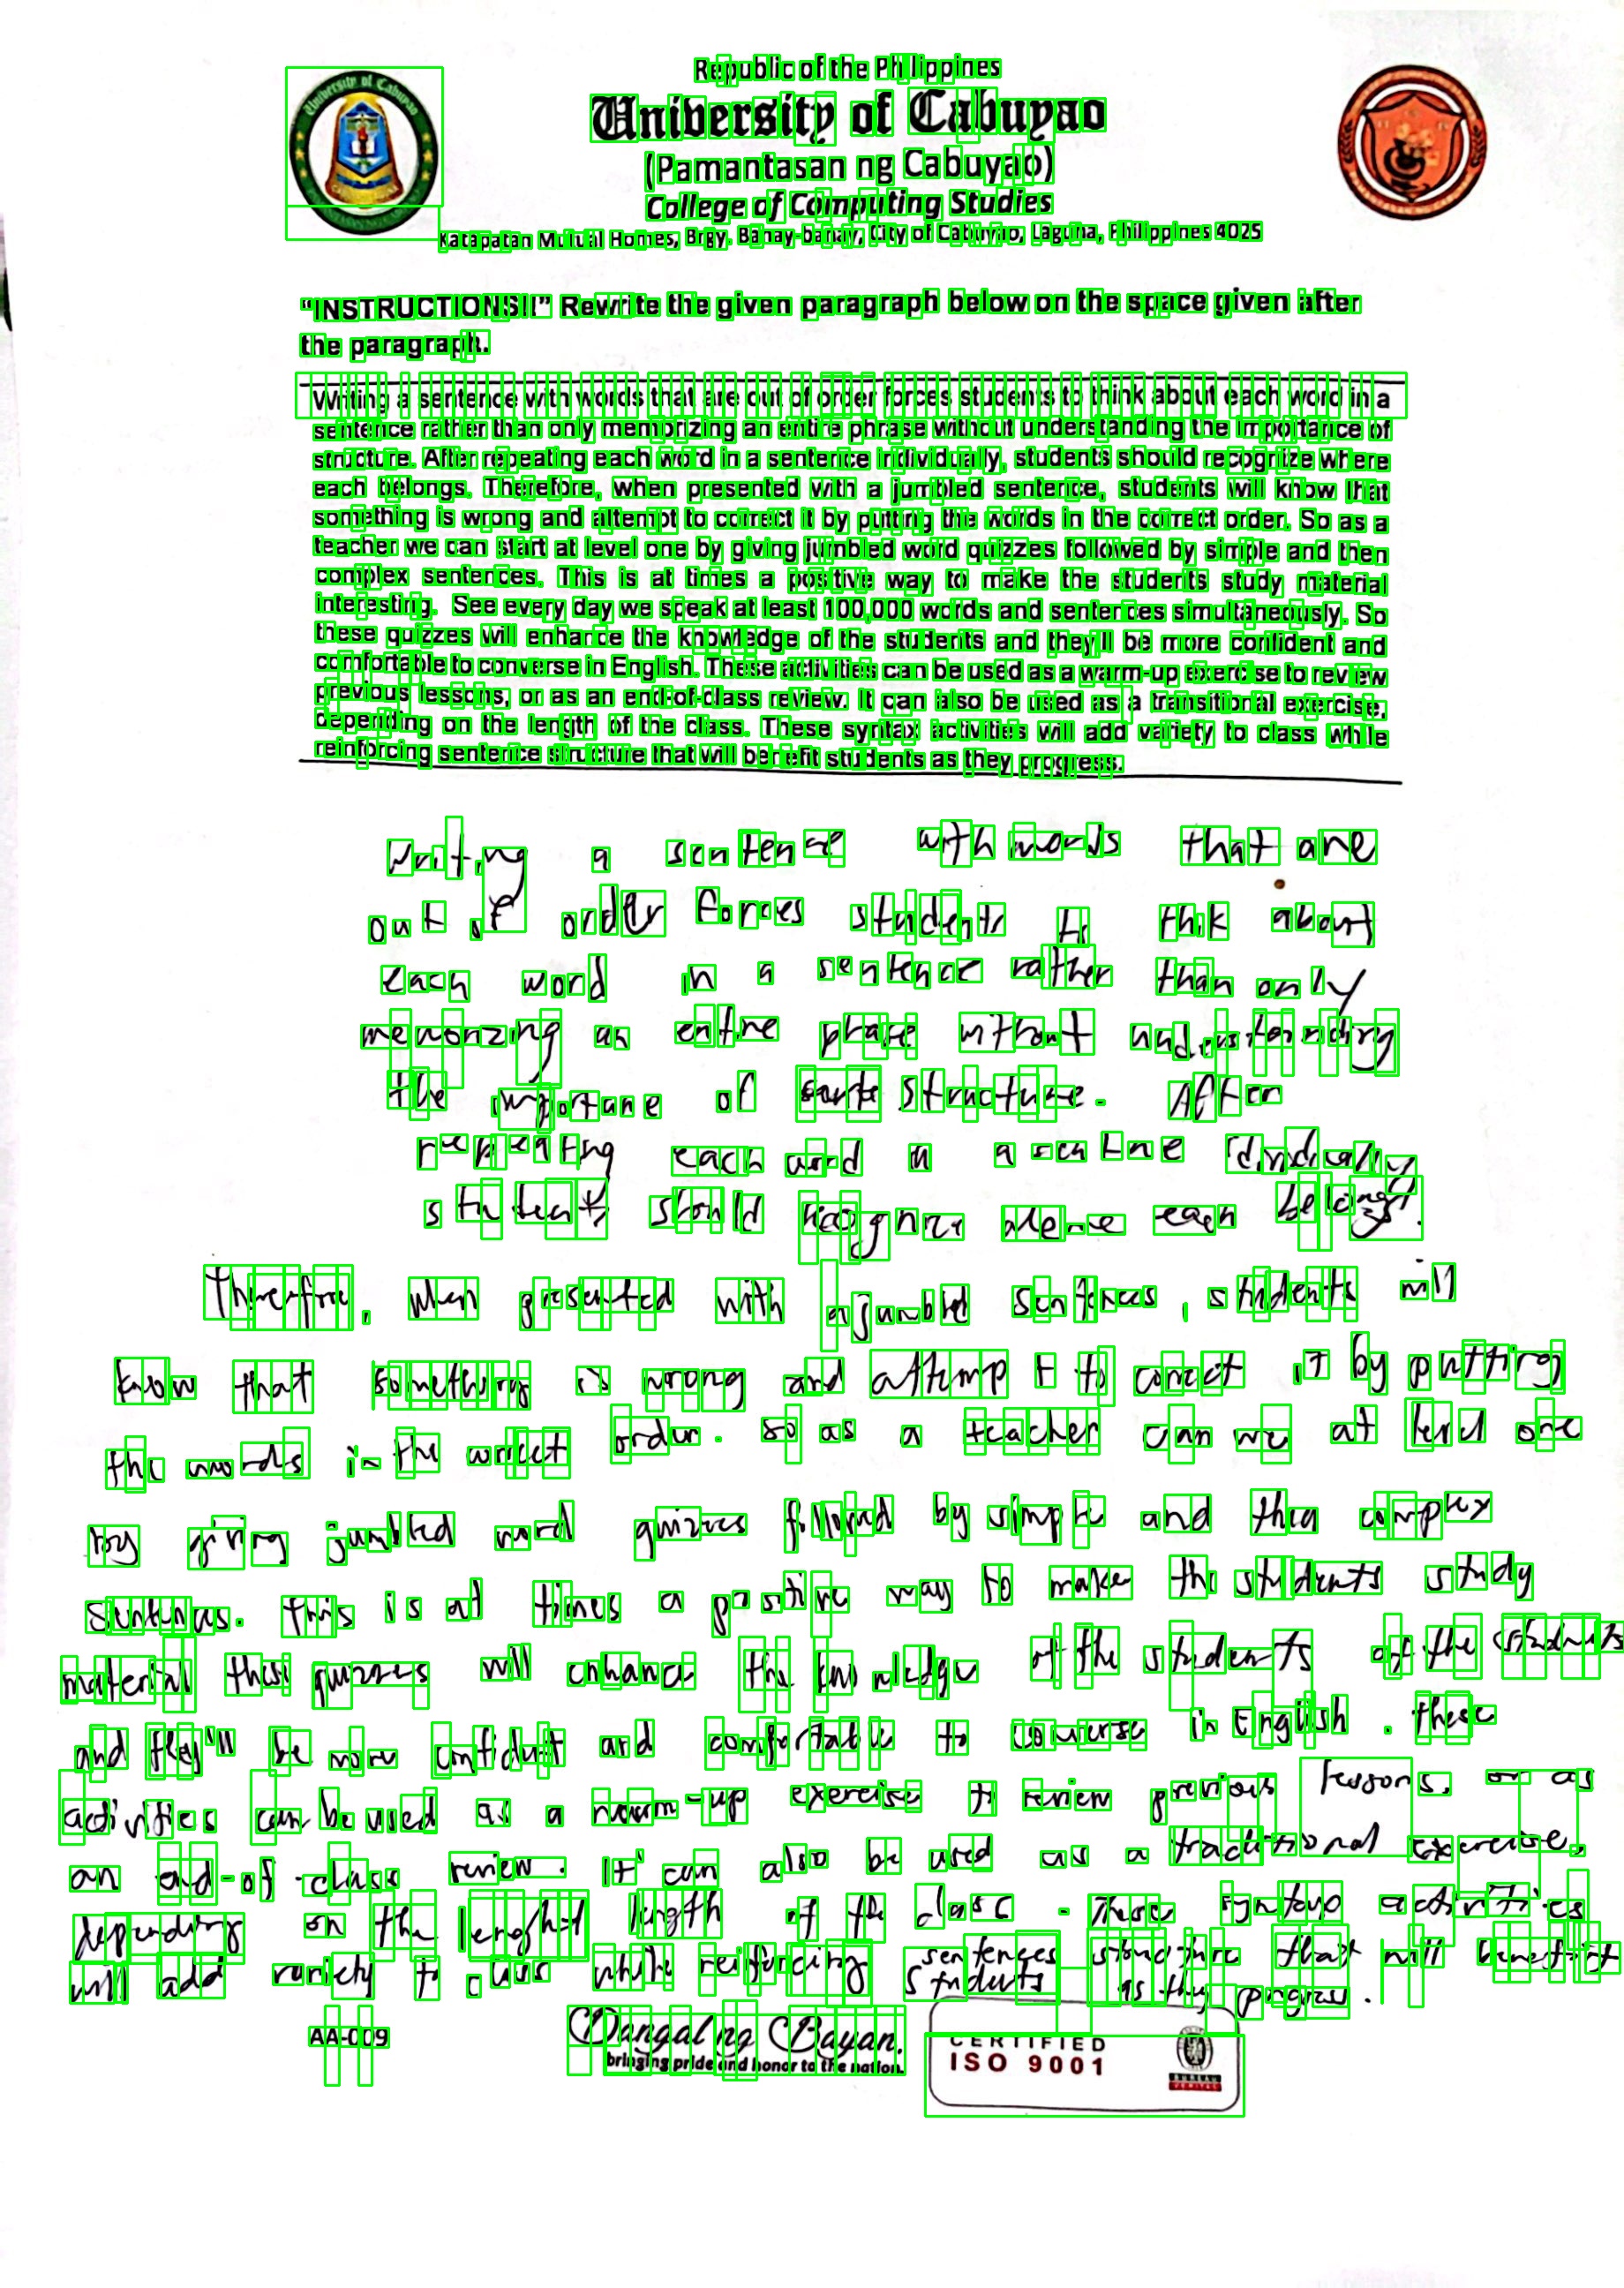 Republic of the Philippines
University of Cabuyao
(Pamantasan ng Cabuyao)
College of Computing Studies
Katapatan Mutual Homes, Brgy. Banay-banay, City of Cabuyao, Laguna, Philippines 4025
"INSTRUCTIONS!!" Rewrite the given paragraph below on the space given after
the paragraph.
Writing a sentence with words that are out of order forces students to think about each word in a
sentence rather than only memorizing an entire phrase without understanding the importance of
structure. After repeating each word in a sentence individually, students should recognize where
each belongs. Therefore, when presented with a jumbled sentence, students will know that
something is wrong and attempt to correct it by putting the words in the correct order. So as a
teacher we can start at level one by giving jumbled word quizzes followed by simple and then
complex sentences. This is at times a positive way to make the students study material
interesting. See every day we speak at least 100,000 words and sentences simultaneously. So
these quizzes will enhance the knowledge of the students and they'll be more confident and
comfortable to converse in English. These activities can be used as a warm-up exercise to review
previous lessons, or as an end-of-class review. It can also be used as a transitional exercise,
depending on the length of the class. These syntax activities will add variety to class while
reinforcing sentence structure that will benefit students as they progress.
writing a sentence with words that are
out of order forces students to thik about
each word in a sentence rather than only
memorizing an entire phrase without understanding
the importane of structure. After
repeating each word in a sentne idividually
students should recognize where each belongs.
Therefore, when presented with a jumbled sentences, students will
know that something is wrong and attempt to correct it by putting
the words in the correct order. so as a teacher can we at level one
by giving jumbled word quizzes followed by simple and then complex
sentences. this is at times a positive way to make the students study
material these quizzes will enhance the knowledge of the students of the students
and they'll be more confident and comfortable to converse in English. these
activities can be used as a warm-up exercise to review previous lessons, or as
an end-of-class review. It can also be used as a tradutional exercise,
depending on the lenght length of the class. These syntax activities
will add variety to class while reinforcing sentences structure that will benefit
students as they progress.
AA-009
Dangal ng Bayan.
bringing pride and honor to the nation.
CERTIFIED
ISO 9001
BUREAU
VERITAS